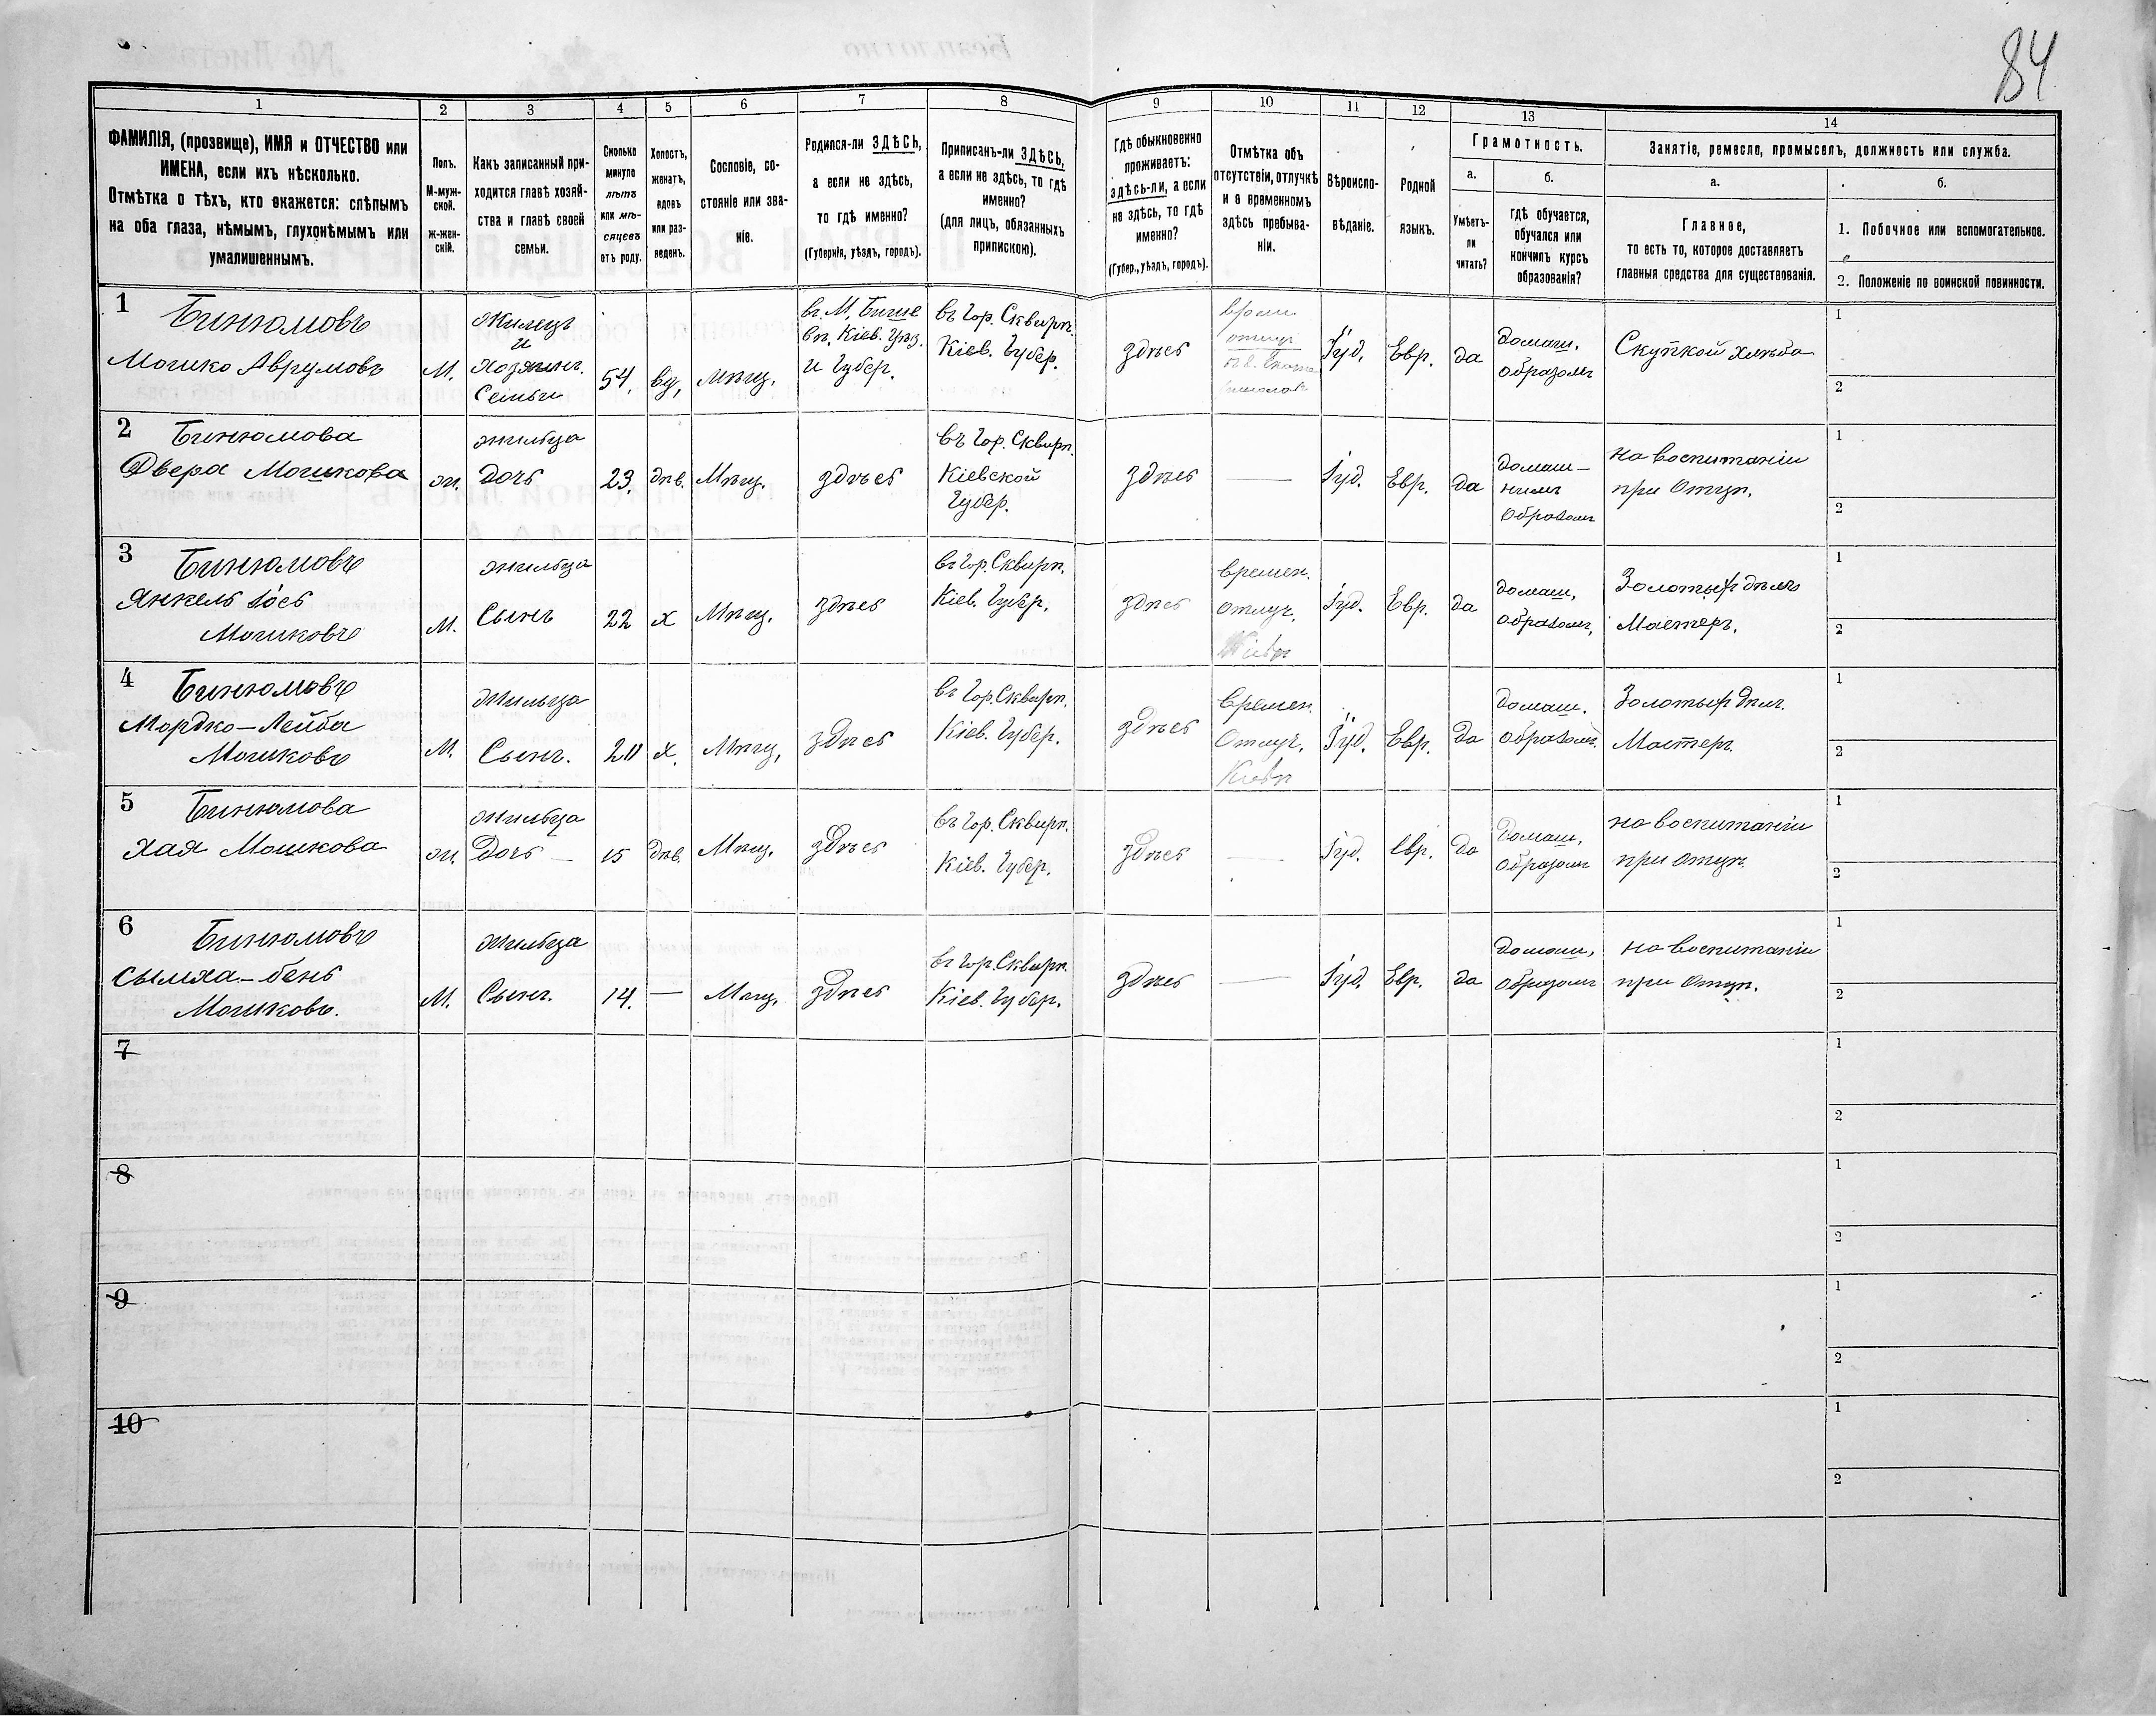 84
1 2 3 4 5 6 7 8 9 10 11 12 13 14
ФАМИЛІЯ, (прозвище), ИМЯ и ОТЧЕСТВО или
ИМЕНА, если ихъ нѣсколько.
Отмѣтка о тѣхъ, кто окажется: слѣпымъ
на оба глаза, нѣмымъ, глухонѣмымъ или
умалишеннымъ.
Полъ.
М-муж-
ской.
Ж-жен-
скій.
Какъ записанный при-
ходится главѣ хозяй-
ства и главѣ своей
семьи.
Сколько
минуло
лѣтъ
или мѣ-
сяцевъ
отъ роду.
Холостъ,
женатъ,
вдовъ
или раз-
веденъ.
Сословіе, со-
стояніе или зва-
ніе.
Родился-ли ЗДѢСЬ,
а если не здѣсь,
то гдѣ именно?
(Губернія, уѣздъ, городъ).
Приписанъ-ли ЗДѢСЬ,
а если не здѣсь, то гдѣ
именно?
(для лицъ, обязанныхъ
припискою).
Гдѣ обыкновенно
проживаетъ:
ЗДѢСЬ-ЛИ, а если
не здѣсь, то гдѣ
именно?
(Губер., уѣздъ, городъ).
Отмѣтка объ
отсутствіи, отлучкѣ
и о временномъ
здѣсь пребыва-
ніи.
Вѣроиспо-
вѣданіе.
Родной
языкъ.
Грамотность.
а.
Умѣетъ-
ли
читать?
б.
гдѣ обучается,
обучался или
кончилъ курсъ
образованія?
Занятіе, ремесло, промыселъ, должность или служба.
а.
Главное,
то есть то, которое доставляетъ
главныя средства для существованія.
б.
1. Побочное или вспомогательное.
2. Положеніе по воинской повинности.
1
Бинюмовъ
Мошко Аврумовъ
М.
Жилецъ
и
Хозяинъ
Семьи
54.
вд.
Мѣщ.
и Губер.
въ Гор. Сквирѣ
Кіев. Губер.
здѣсь
Іуд.
Евр.
да
домаш.
образомъ
Скупкой хлѣба
1
2
2
Бинюмова
Двера Мошкова
ж.
жильца
Дочь
23.
дѣв.
Мѣщ.
здѣсь
въ Гор. Сквирѣ
Кіевской
Губер.
здѣсь
—
Іуд.
Евр.
да
домаш-
нимъ
образомъ
на воспитаніи
при Отцѣ.
1
2
3
Бинюмовъ
Янкель Іось
Мошковъ
М.
жильца
Сынъ
22
х
Мѣщ.
здѣсь
въ Гор. Сквирѣ.
Кіев. Губер.
здѣсь
времен.
отлуч.
Кіевъ
Іуд.
Евр.
да
домаш.
образомъ,
Золотыхъ дѣлъ
Мастеръ.
1
2
4
Бинюмовъ
Мордко-Лейба
Мошковъ
М.
жильца
Сынъ.
х.
Мѣщ.
здѣсь
въ Гор. Сквирѣ.
Кіев. Губер.
здѣсь
времен.
Отлуч.
Кіевъ
Іуд.
Евр.
да
домаш.
образомъ
Золотыхъ дѣлъ.
Мастеръ.
1
2
5
Бинюмова
Хая Мошкова
ж.
жильца
Дочь —
15
дѣв.
Мѣщ.
здѣсь
въ Гор. Сквирѣ.
Кіев. Губер.
здѣсь
—
Іуд.
Евр.
да
Домаш.
Образомъ
на воспитаніи
при отцѣ.
1
2
6
Бинюмовъ
Сымха-бень
Мошковъ.
М.
жильца
Сынъ.
14.
—
Мѣщ.
здѣсь
въ Гор. Сквирѣ.
Кіев. Губер.
здѣсь
—
Іуд.
Евр.
да
домаш.
образомъ
на воспитаніи
при Отцѣ.
1
2
7
1
2
8
1
2
9
1
2
10
1
2